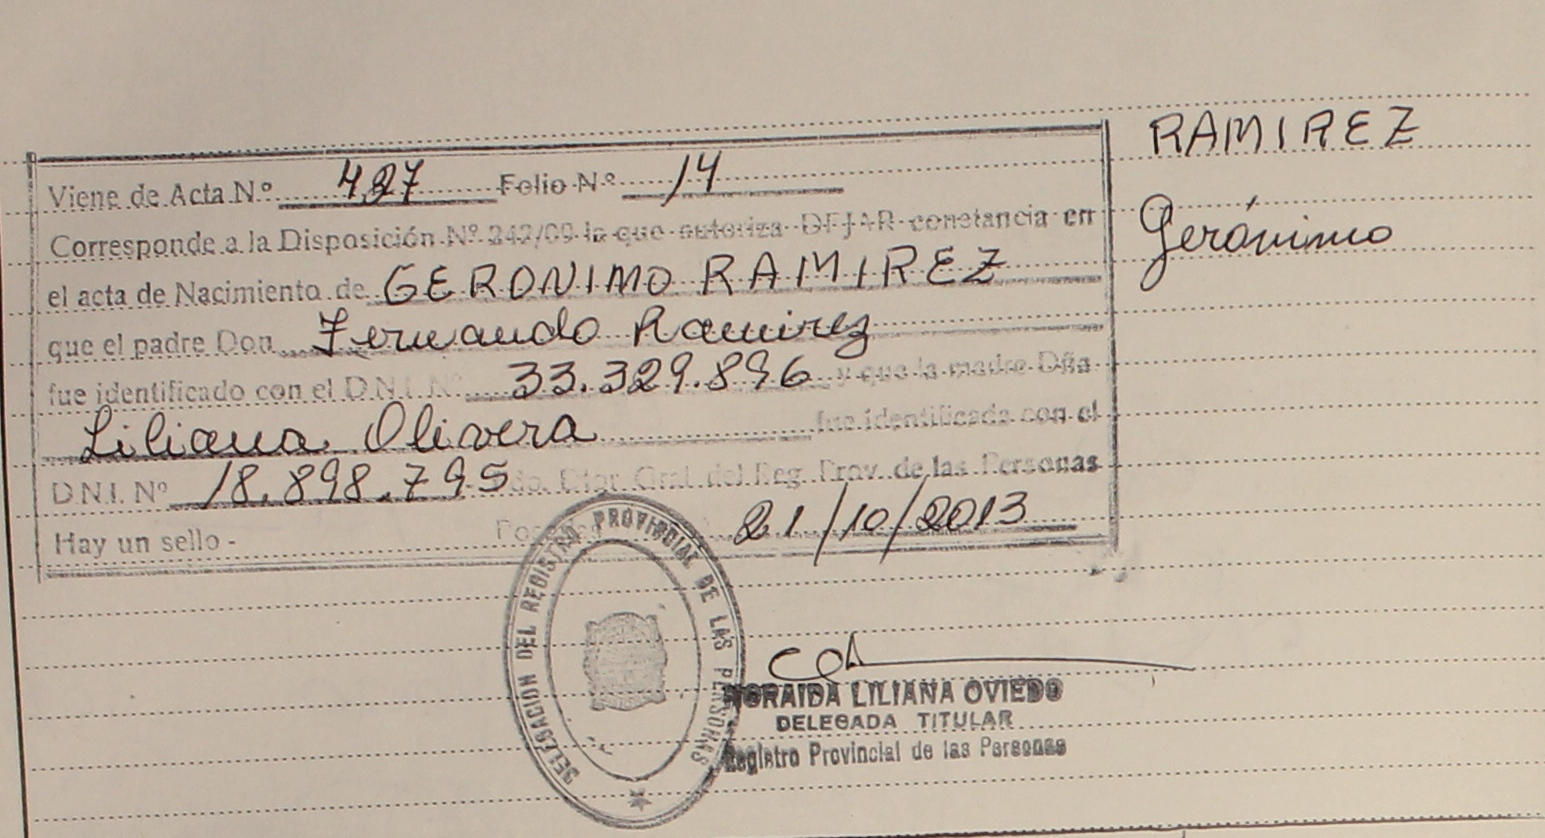 Viene de Acta Nº 427 Folio Nº 14
Corresponde a la Disposición Nº 242/09 la que autoriza DEJAR constancia en
el acta de Nacimiento de GERONIMO RAMIREZ
que el padre Don Fernando Ramirez
fue identificado con el D.N.I. Nº 33.329.896 y que la madre Dña
Liliana Olivera fue identificada con el
D.N.I. Nº 18.898.795 do. Dtor. Gral del Reg. Prov. de las Personas
Hay un sello - 21/10/2013
RAMIREZ
Gerónimo
DELEGACION DEL REGISTRO PROVINCIAL DE LAS PERSONAS
NORAIDA LILIANA OVIEDO
DELEGADA TITULAR
Registro Provincial de las Personas